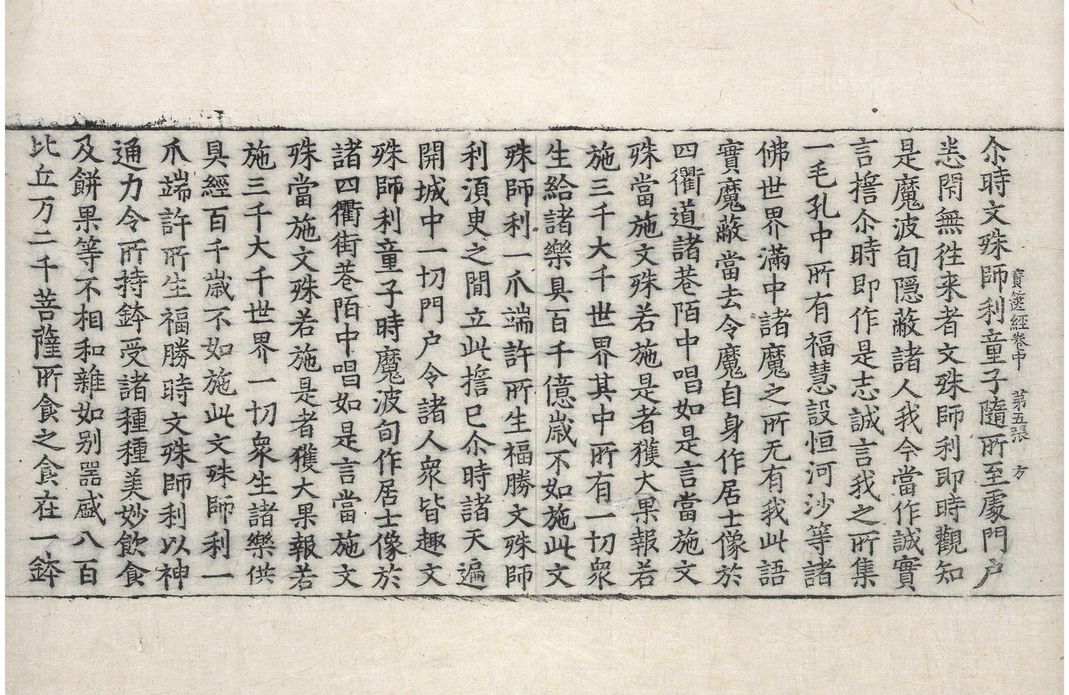 尒時文殊師利童子隨所至處門戶
寳篋經卷中　第五張　方
悉閇無往来者文殊師利即時觀知
是魔波旬隱蔽諸人我今當作誠實
言擔尒時即作是志誠言我之所集
一毛孔中所有福慧設恒河沙等諸
佛世界滿中諸魔之所无有我此語
實魔蔽當去令魔自身作居士像於
四衢道諸巷陌中唱如是言當施文
殊當施文殊若施是者獲大果報若
施三千大千世界其中所有一切衆
生給諸樂具百千億歳不如施此文
殊師利一爪端許所生福勝文殊師
利湏臾之閒立此擔已尒時諸天遍
開城中一切門戶令諸人衆皆趣文
殊師利童子時魔波旬作居士像於
諸四衢街巷陌中唱如是言當施文
殊當施文殊若施是者獲大果報若
施三千大千世界一切衆生諸樂供
具經百千歳不如施此文殊師利一
爪端許所生福勝時文殊師利以神
通力令所持鉢受諸種種美妙飲食
及餅果等不相和雜如别器盛八百
比丘万二千菩薩所食之食在一鉢